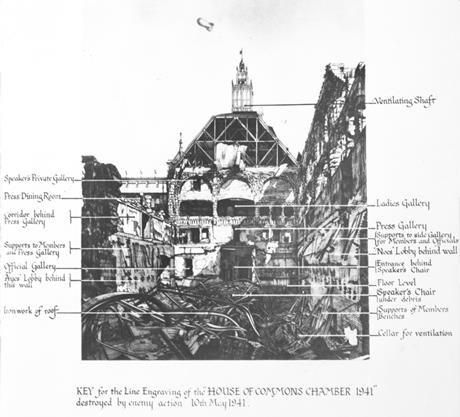 Ventilating Shaft
Speaker's Private Gallery
Press Dining Room
Corridor behind
Press Gallery
Supports to Members
and Press Gallery
Official Gallery
Ayes' Lobby behind
this wall
Ironwork of roof
Ladies Gallery
Press Gallery
Supports to side Gallery
for Members and Officials
Noes' Lobby behind wall
Entrance behind
Speaker's Chair
Floor Level
Speaker's Chair
under debris
Supports of Members
Benches
Cellar for ventilation
KEY for the Line Engraving of the "HOUSE OF COMMONS CHAMBER 1941"
destroyed by enemy action 10th May 1941.